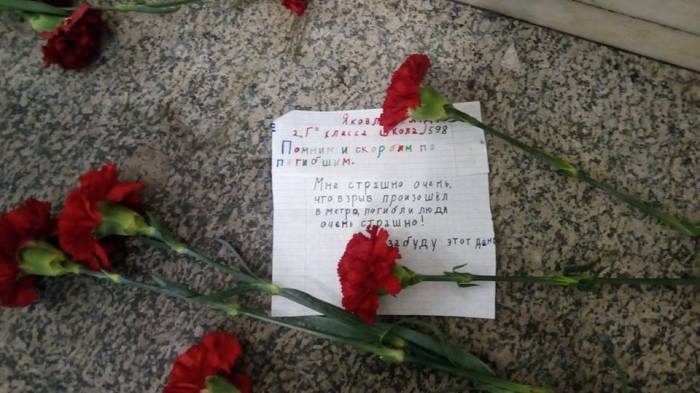 2 „Г" класса школа 598
Помним и скорбим по
погибшим.
Мне страшно очень,
что взрыв произошёл
в метро, погибли люди
очень страшно!
забуду этот день